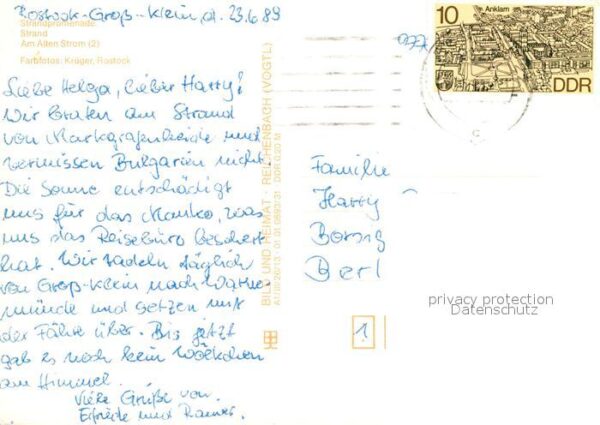 Rostock-Groß-Klein, d. 23.6.89
Strandpromenade
Strand
Am Alten Strom (2)
Farbfotos: Krüger, Rostock
Liebe Helga, lieber Harry!
Wir braten am Strand
von Markgrafenheide und
vermissen Bulgarien nicht.
Die Sonne entschädigt
uns für das Manko, was
uns das Reisebüro beschert
hat. Wir radeln täglich
von Groß-Klein nach Warne
münde und setzen mit
der Fähre über. Bis jetzt
gab es noch kein Wölkchen
am Himmel.
Viele Grüße von
Elfriede und Rainer.
BILD UND HEIMAT REICHENBACH (VOGTL)
DDR 0,20 M
10
Anklam
DDR
Familie
Harry
Berl
1
privacy protection
Datenschutz